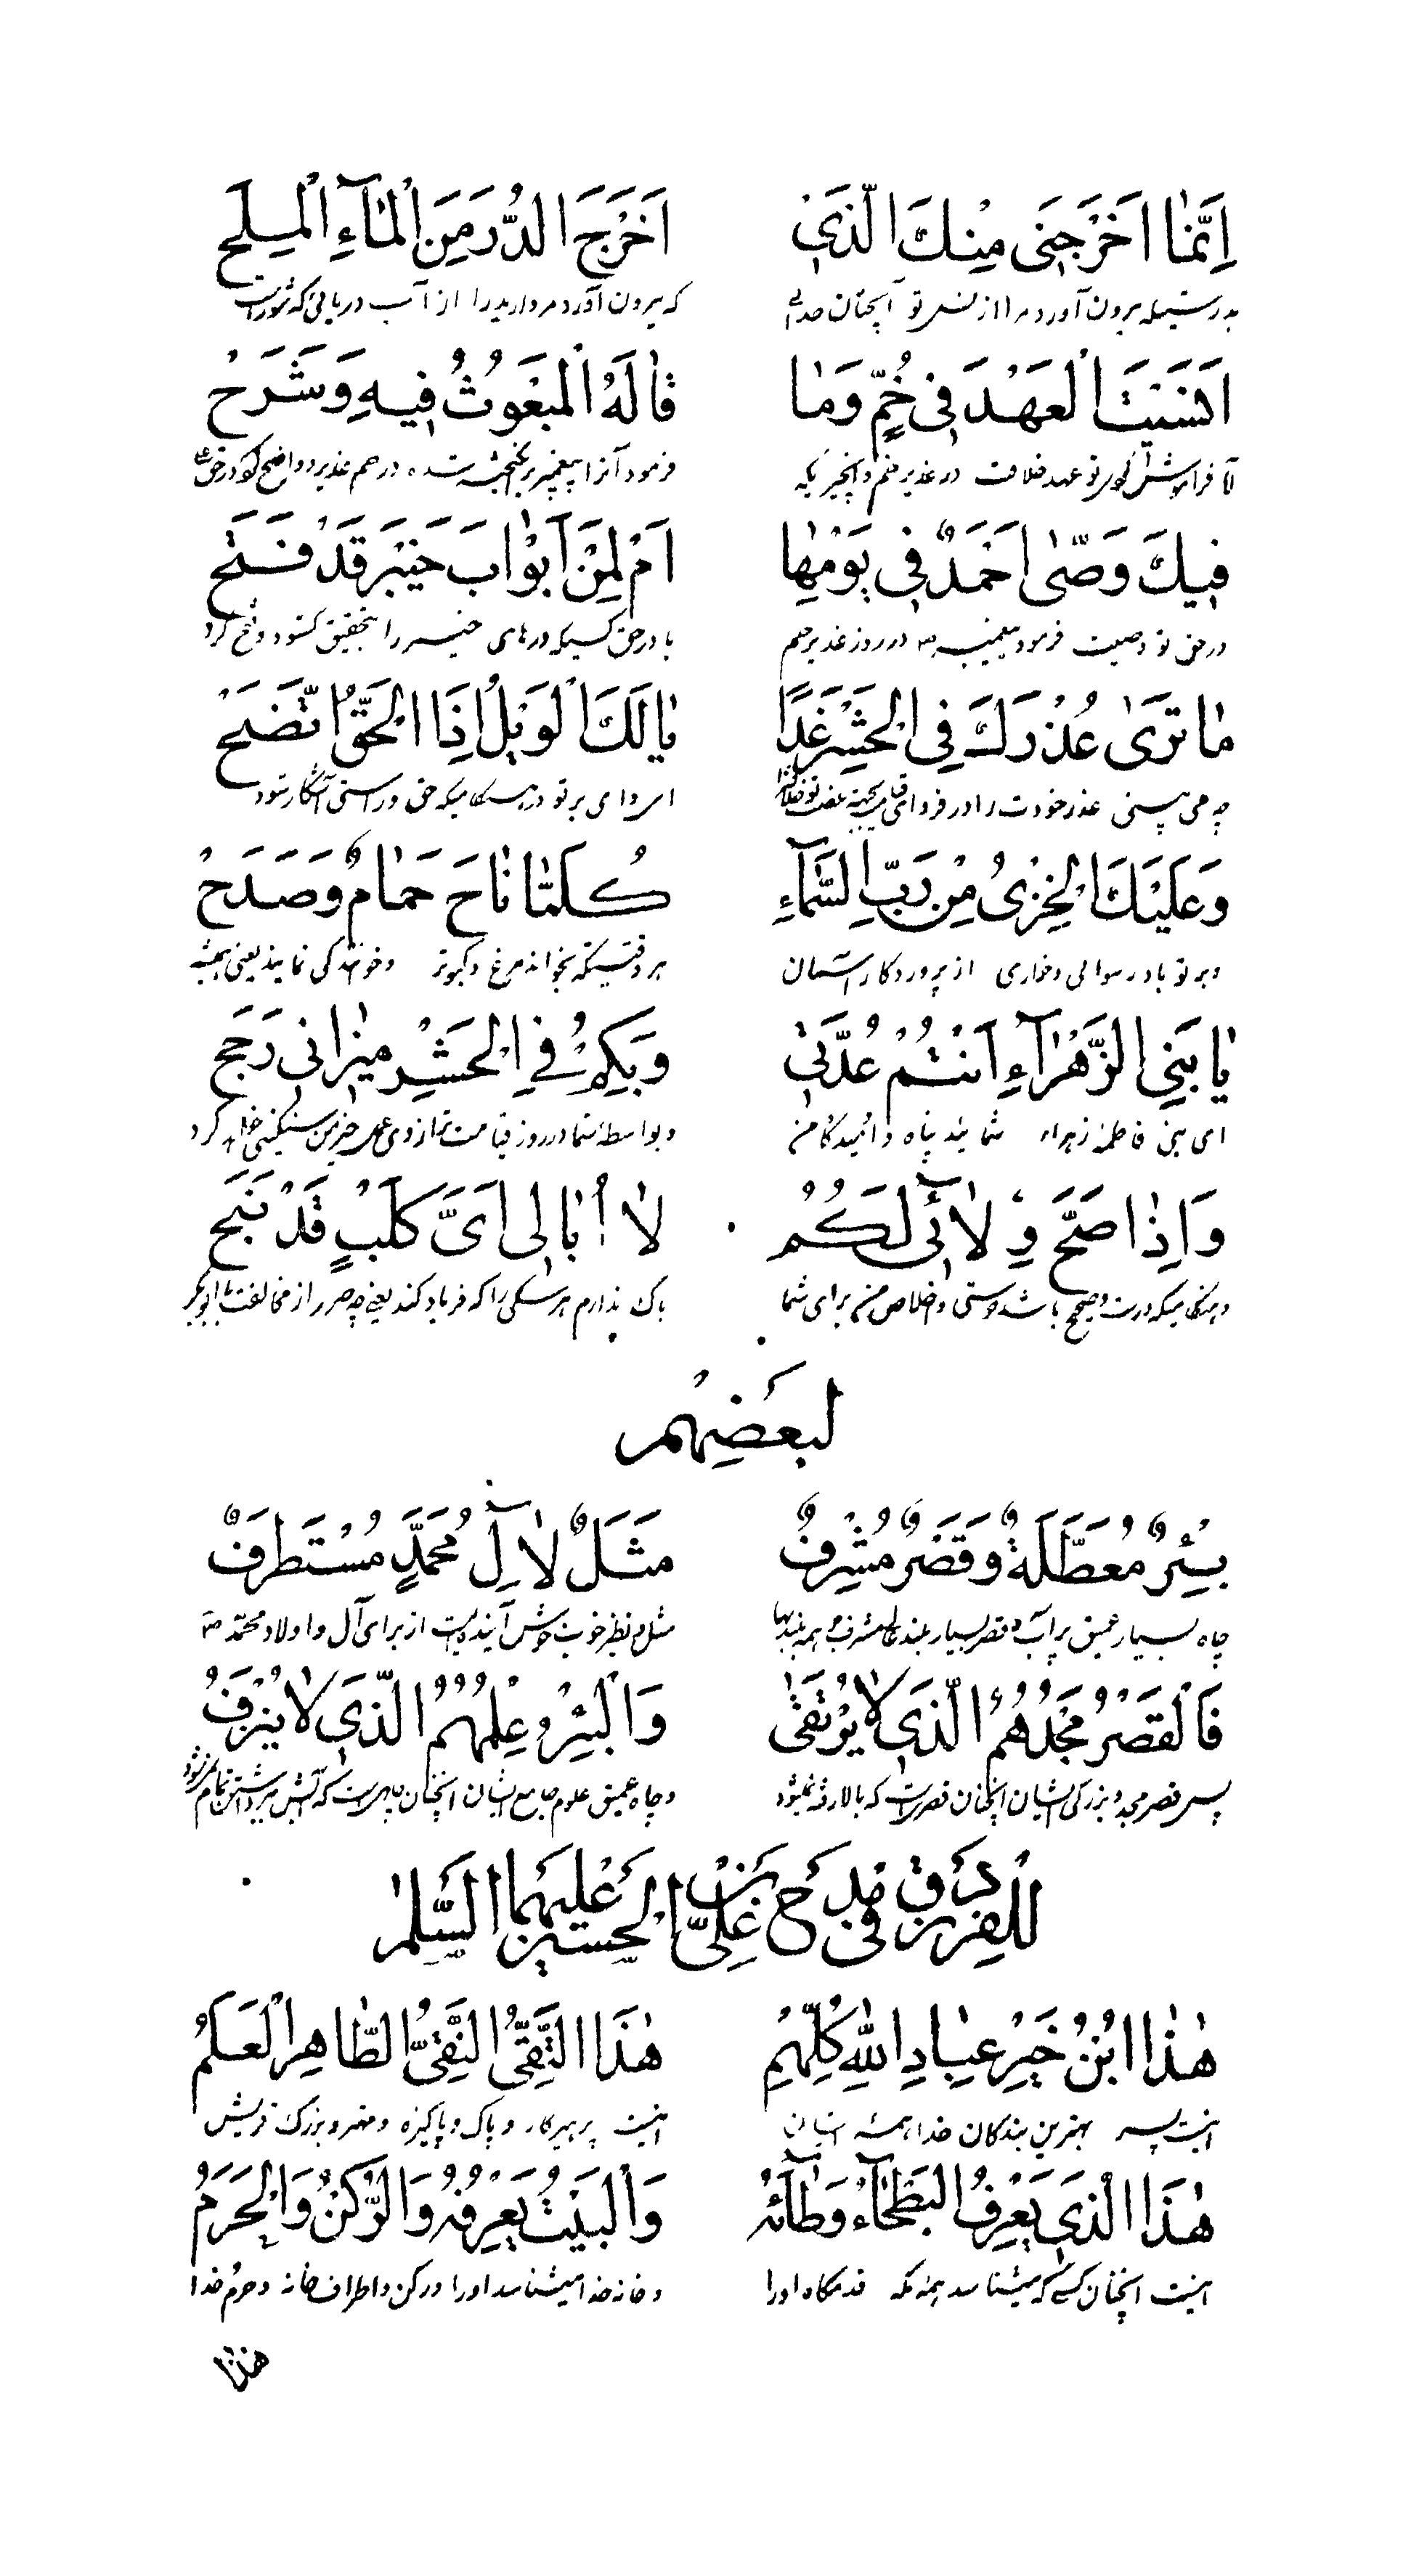 اِنَّمٰا اَخْرَجَنی مِنْكَ الَّذی اَخْرَجَ الدُّرَ مِنَ الْمٰآءِ الْمِلِحْ
بدرستیکه بیرون آورد مرا از نفس تو آنچنان خدائی که بیرون آورد مروارید را از آب دریائی که شور است
اَنَسَیْتَ الْعَهْدَ فی خُمٍّ وَمٰا قٰالَهُ الْمَبْعُوثُ فیهِ وَشَرَحْ
آیا فراموش تو عهد خلافت در غدیر خم و آنچیزیکه فرمود آنرا پیغمبر برانگیخته شده در خم غدیر و واضح
فیكَ وَصّیٰ اَحْمَدٌ فی یَوْمِهٰا اَمْ لِمَنْ اَبْوٰابَ خَیْبَرَ قَدْ فَتَحْ
در حق تو وصیت فرمود پیغمبر ص در روز غدیر خم یا در حق کسیکه درهای خیبر را بتحقیق گشود و فتح کرد
مٰا تَریٰ عُذْرَكَ فِی الْحَشْرِ غَدًا یٰا لَكَ الْوَیْلُ اِذَا الْحَقُّ اتَّضَحْ
چه می بینی عذر خودت را در فردای ای وای بر تو در هنگامیکه حق و راستی آشکار شود
وَعَلَیْكَ الْخِزْیُ مِنْ رَبِّ السَّمٰآءِ کُلَّمٰا نٰاحَ حَمٰامٌ وَصَدَحْ
و بر تو باد رسوائی و خواری از پروردگار آسمان هر وقتیکه بخواند مرغ و کبوتر و خوانندگی نمایند یعنی همیشه
یٰا بَنِی الزَّهْرٰآءِ اَنْتُمْ عُدَّتی وَبِکُمْ فِی الْحَشْرِ میزٰانی رَجَحْ
ای بنی فاطمهٔ زهراء شمائید پناه و امیدگاه من و بواسطهٔ شما در روز قیامت ترازوی من سنگینی خواهد کرد
وَاِذٰا صَحَّ وِلٰآئی لَکُمْ لٰا اُبٰالی اَیَّ کَلْبٍ قَدْ نَبَحْ
و هنگامیکه درست و صحیح باشد دوستی و اخلاص من برای شما باک ندارم هر سگی را که فریاد کند یعنی چه ضرر از مخالفت
لبعضهم
بِئْرٌ مُعَطَّلَةٌ وَقَصْرٌ مُشْرِفٌ مَثَلٌ لٰالِ مُحَمَّدٍ مُسْتَطْرَفٌ
چاه بسیار عمیق پر آب و قصر بسیار بلند مشرف بر همه بلندیها مثل و نظیر خوب خوش آینده است از برای آل و اولاد محمّد ص
فَالْقَصْرُ مَجْدُهُمُ الَّذی لٰا یُرْتَقیٰ وَالْبِئْرُ عِلْمُهُمُ الَّذی لٰا یُنْزَفُ
پس قصر مجد و بزرگی ایشان آنچنان قصریست که بالا رفته نمیشود و چاه عمیق علوم جامع ایشان آنچنان چاهیست که آبش ببرداشتن تمام نمیشود
للفرزدق فی مدح علیّ بن الحسین علیهما السّلام
هٰذَا ابْنُ خَیْرِ عِبٰادِ اللهِ کُلِّهِمِ هٰذَا التَّقِیُّ النَّقِیُّ الطّٰاهِرُ الْعَلَمُ
اینست پسر بهترین بندگان خدا همهٔ ایشان اینست پرهیزکار و پاک و پاکیزه و مهتر و بزرگ قریش
هٰذَا الَّذی یَعْرِفُ الْبَطْحٰآءُ وَطْأَتَهُ وَالْبَیْتُ یَعْرِفُهُ وَالرُّکْنُ وَالْحَرَمُ
اینست آنچنان کسی که میشناسد بمکه قدمگاه او را و خانه خدا میشناسد او را و رکن و اطراف خانه و حرم خدا
هٰذٰا